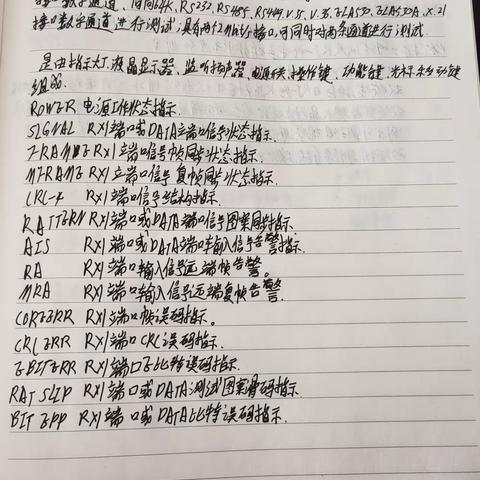 接口数字通道、同向64K、RS232、RS485、RS449、V.35、V.36、EIA530、EIA530A、X.21
接口数字通道进行测试;具有两个2Mb/s接口,可同时对两条通道进行测试.
是由指示灯、液晶显示器、监听扬声器、电源开关、操作键、功能键、光标移动键
组成.
POWER 电源工作状态指示.
SIGNAL RX1端口或DATA端口信号状态指示.
FRAME RX1端口信号帧同步状态指示.
MFRAME RX1端口信号复帧同步状态指示.
CRC-4 RX1端口信号结构指示.
PATTERN RX1端口或DATA端口信号图案同步指示.
AIS RX1端口或DATA端口输入信号告警指示.
RA RX1端口输入信号远端帧告警。
MRA RX1端口输入信号远端复帧告警.
CODEERR RX1端口帧误码指示。
CRC ERR RX1端口CRC误码指示.
EBITERR RX1端口E比特误码指示.
PAT SLIP RX1端口或DATA测试图案滑码指示.
BIT ERR RX1端口或DATA比特误码指示.